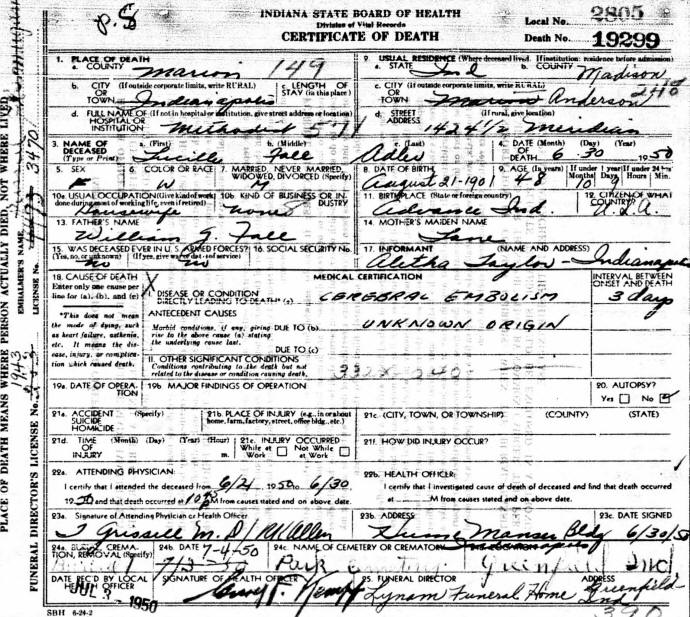 P.8
INDIANA STATE BOARD OF HEALTH
Division of Vital Records
CERTIFICATE OF DEATH
Local No. 2805
Death No. 19299
1. PLACE OF DEATH
a. COUNTY Marion 149
2. USUAL RESIDENCE (Where deceased lived. If institution: residence before admission)
a. STATE Ind b. COUNTY Madison
b. CITY OR TOWN (If outside corporate limits, write RURAL) Indianapolis
c. LENGTH OF STAY (in this place)
c. CITY OR TOWN (If outside corporate limits, write RURAL) Marion Anderson
d. FULL NAME OF HOSPITAL OR INSTITUTION (If not in hospital or institution, give street address or location) Methodist 571
d. STREET ADDRESS (If rural, give location) 1424 1/2 Meridian
3. NAME OF DECEASED (Type or Print)
a. (First) Lucille b. (Middle) Fall c. (Last) Adler
4. DATE OF DEATH (Month) (Day) (Year) 6 30 1950
5. SEX F
6. COLOR OR RACE W
7. MARRIED, NEVER MARRIED, WIDOWED, DIVORCED (Specify) M
8. DATE OF BIRTH August 21-1901
9. AGE (In years) 48 If under 1 year Months 10 Days 9 If under 24 hrs Hours Min.
10a. USUAL OCCUPATION (Give kind of work done during most of working life, even if retired) Housewife
10b. KIND OF BUSINESS OR INDUSTRY none
11. BIRTHPLACE (State or foreign country) Advance Ind
12. CITIZEN OF WHAT COUNTRY? U.S.A.
13. FATHER'S NAME William G. Fall
14. MOTHER'S MAIDEN NAME Lane
15. WAS DECEASED EVER IN U. S. ARMED FORCES? (Yes, no, or unknown) (If yes, give war or dates of service) No
16. SOCIAL SECURITY No. no
17. INFORMANT (NAME AND ADDRESS) Aletha Taylor - Indianapolis
18. CAUSE OF DEATH
Enter only one cause per line for (a), (b), and (c)
MEDICAL CERTIFICATION
INTERVAL BETWEEN ONSET AND DEATH
I. DISEASE OR CONDITION DIRECTLY LEADING TO DEATH* (a) CEREBRAL EMBOLISM 3 days
*This does not mean the mode of dying, such as heart failure, asthenia, etc. It means the disease, injury, or complication which caused death.
ANTECEDENT CAUSES
Morbid conditions, if any, giving rise to the above cause (a) stating the underlying cause last.
DUE TO (b) UNKNOWN ORIGIN
DUE TO (c)
II. OTHER SIGNIFICANT CONDITIONS
Conditions contributing to the death but not related to the disease or condition causing death.
332X
19a. DATE OF OPERATION
19b. MAJOR FINDINGS OF OPERATION
20. AUTOPSY?
Yes No
21a. ACCIDENT SUICIDE HOMICIDE (Specify)
21b. PLACE OF INJURY (e.g., in or about home, farm, factory, street, office bldg., etc.)
21c. (CITY, TOWN, OR TOWNSHIP) (COUNTY) (STATE)
21d. TIME OF INJURY (Month) (Day) (Year) (Hour) m.
21e. INJURY OCCURRED While at Work Not While at Work
21f. HOW DID INJURY OCCUR?
22a. ATTENDING PHYSICIAN:
I certify that I attended the deceased from 6/21 1950 to 6/30
1950 and that death occurred at M from causes stated and on above date.
22b. HEALTH OFFICER:
I certify that I investigated cause of death of deceased and find that death occurred at M from causes stated and on above date.
23a. Signature of Attending Physician or Health Officer
J Grissell M.D/ RKAllen
23b. ADDRESS Hume Mansur Bldg
23c. DATE SIGNED 6/30/50
24a. BURIAL, CREMATION, REMOVAL (Specify)
24b. DATE 7-4-50
7/3-50
24c. NAME OF CEMETERY OR CREMATORY Park Cemetery Greenfield Ind
DATE REC'D BY LOCAL HEALTH OFFICER JUL 3 - 1950
SIGNATURE OF HEALTH OFFICER
25. FUNERAL DIRECTOR ADDRESS
Lynam Funeral Home Greenfield Ind
SBH 6-24-2
390
PLACE OF DEATH MEANS WHERE PERSON ACTUALLY DIED, NOT WHERE LIVED
EMBALMER'S NAME
LICENSE No. 3470
FUNERAL DIRECTOR'S LICENSE No.
1943